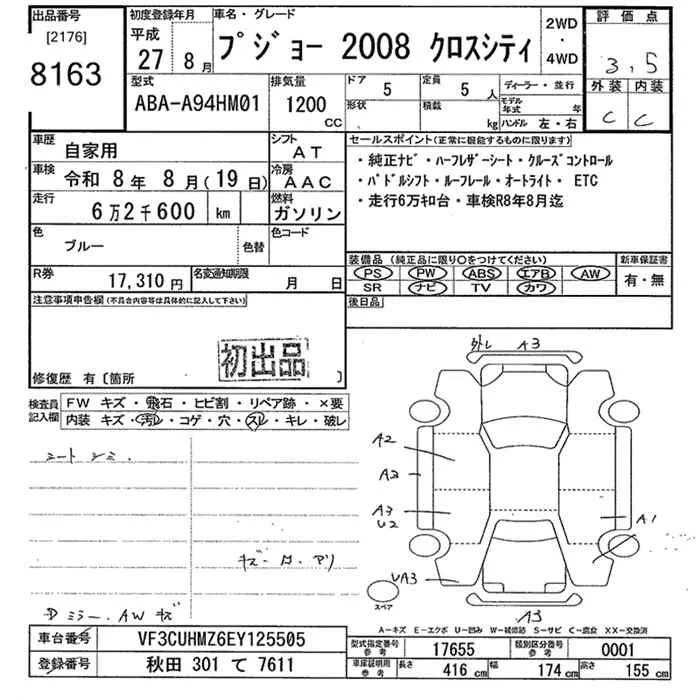 出品番号 [2176] 8163
初度登録年月 平成 27 8月
車名・グレード プジョー 2008 クロスシティ
2WD・4WD
評価点 3,5
外装 内装 C C
型式 ABA-A94HM01
排気量 1200 CC
ドア 5
形状
定員 5 人
積載 kg
ディーラー・並行
モデル年式 年
ハンドル 左・右
車歴 自家用
シフト AT
車検 令和 8年 8月(19日)
冷房 AAC
走行 6万2千600 km
燃料 ガソリン
色 ブルー 色替
色コード
R券 17,310 円
名変通知期限 月 日
セールスポイント(正常に機能するものに限ります)
・純正ナビ・ハーフレザーシート・クルーズコントロール
・パドルシフト・ルーフレール・オートライト・ ETC
・走行6万キロ台・車検R8年8月迄
装備品(純正品に限り〇をつけてください)
PS PW ABS エアB AW
SR ナビ TV カワ
新車保証書 有・無
後日品
注意事項申告欄(不具合内容等は具体的に記入して下さい)
初出品
修復歴 有〔箇所 〕
検査員記入欄
FW キズ・飛石・ヒビ割・リペア跡・×要
内装 キズ・汚レ・コゲ・穴・スレ・キレ・破レ
シートシミ
キズ・ロ・アリ
Dミラー.AWキズ
外し A3
A2
A3
A3
U2
A1
UA3
A3
スペア
A-キズ E-エクボ U-凹み W-補修跡 S-サビ C-腐食 XX-交換済
車台番号 VF3CUHMZ6EY125505
登録番号 秋田 301 て 7611
型式指定番号 参考 17655
類別区分番号 参考 0001
車庫証明用 参考 長さ 416 cm 幅 174 cm 高さ 155 cm